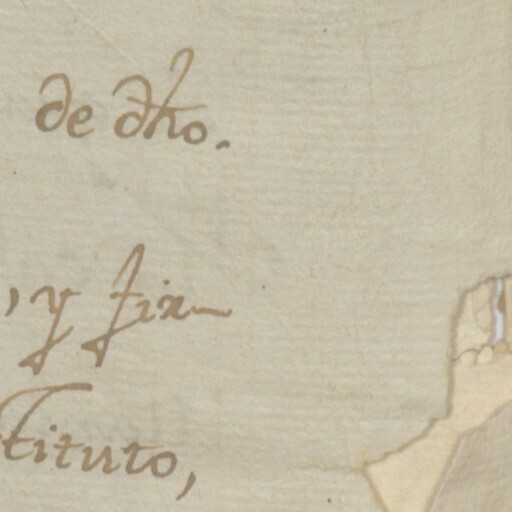 de dho.
, y fix-
tituto,